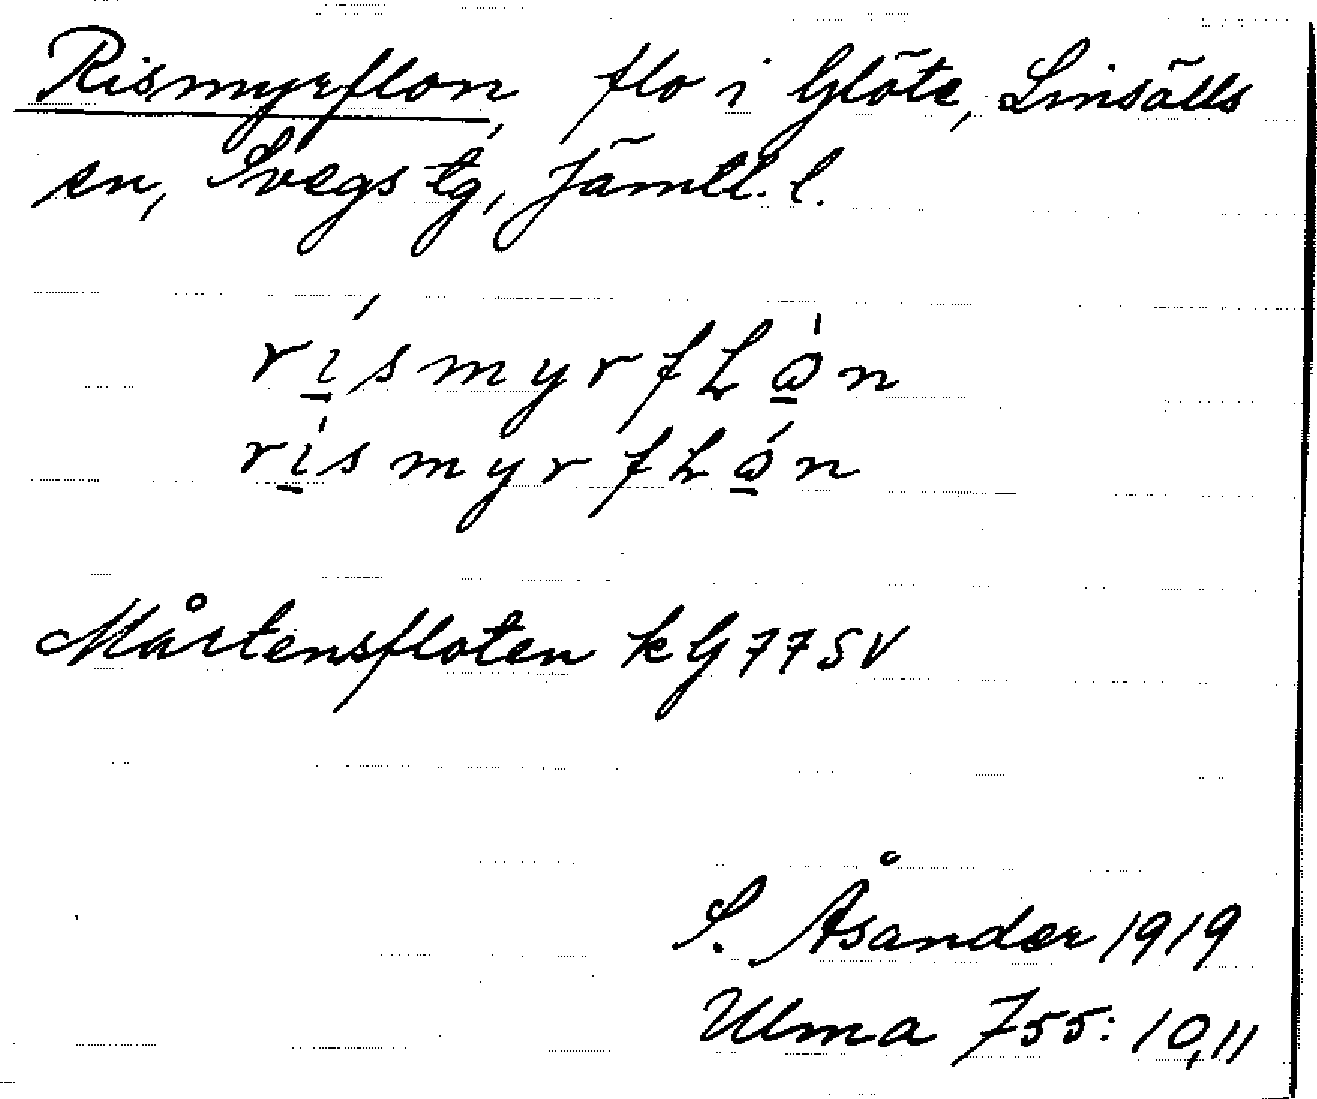 Rismyrflon, flo i Glöte, Linsälls
sn, Svegs tg, Jämtl. l.
rí̱smyrfLɷ̱̀n
rì̱smyrfLɷ̱́n
Mårtensfloten kG77SV
S. Åsander 1919
Ulma 755: 10,11